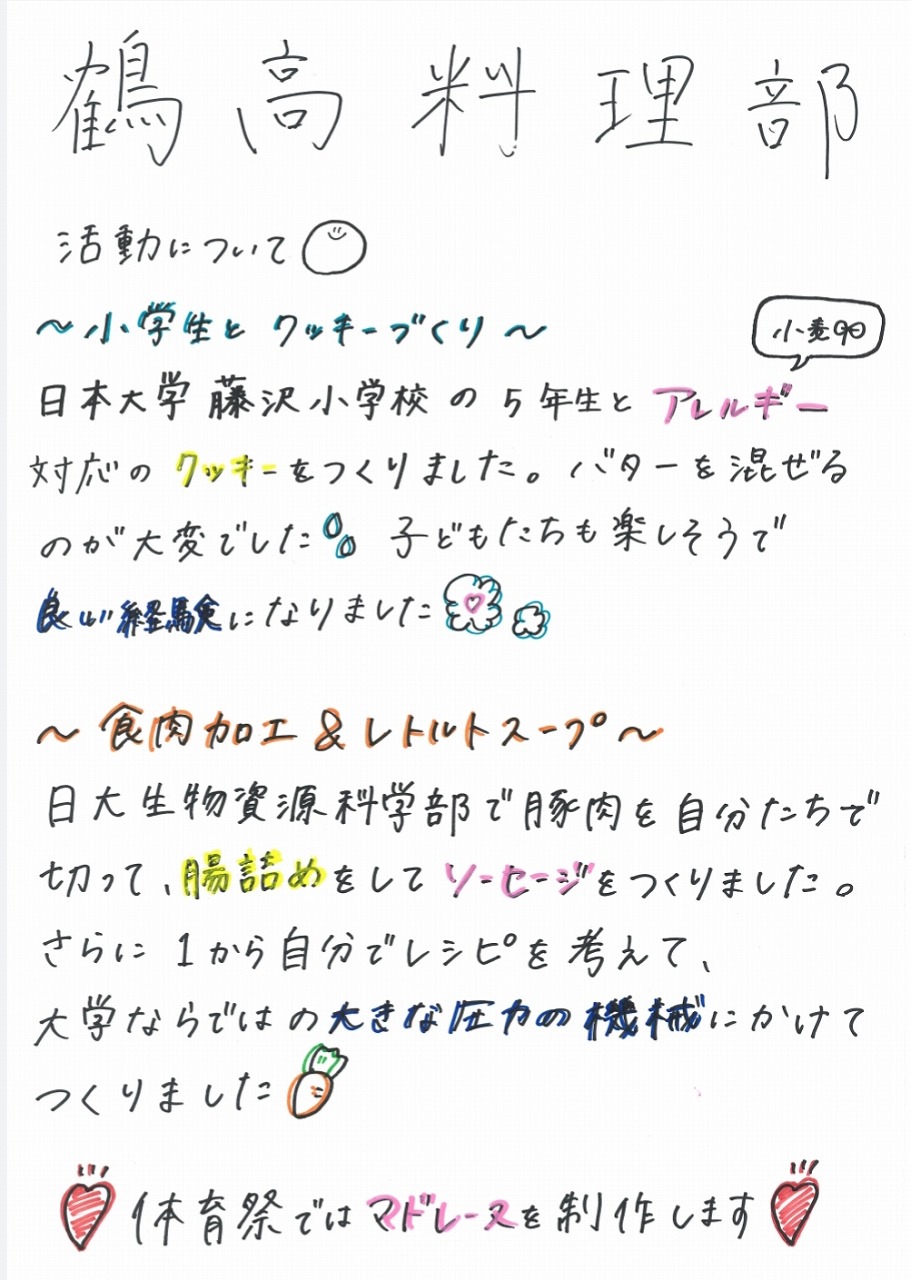 鶴高料理部
活動について
～小学生と クッキーづくり～
小麦、卵
日本大学 藤沢小学校 の 5年生と アレルギー
対応の クッキーをつくりました。バターを混ぜる
のが大変でした 子どもたちも楽しそうで
良い経験になりました
～食肉加工＆レトルトスープ～
日大生物資源科学部で豚肉を自分たちで
切って、腸詰めをして ソーセージをつくりました。
さらに 1から自分でレシピを考えて、
大学ならではの大きな圧力の機械にかけて
つくりました
体育祭ではマドレーヌを制作します